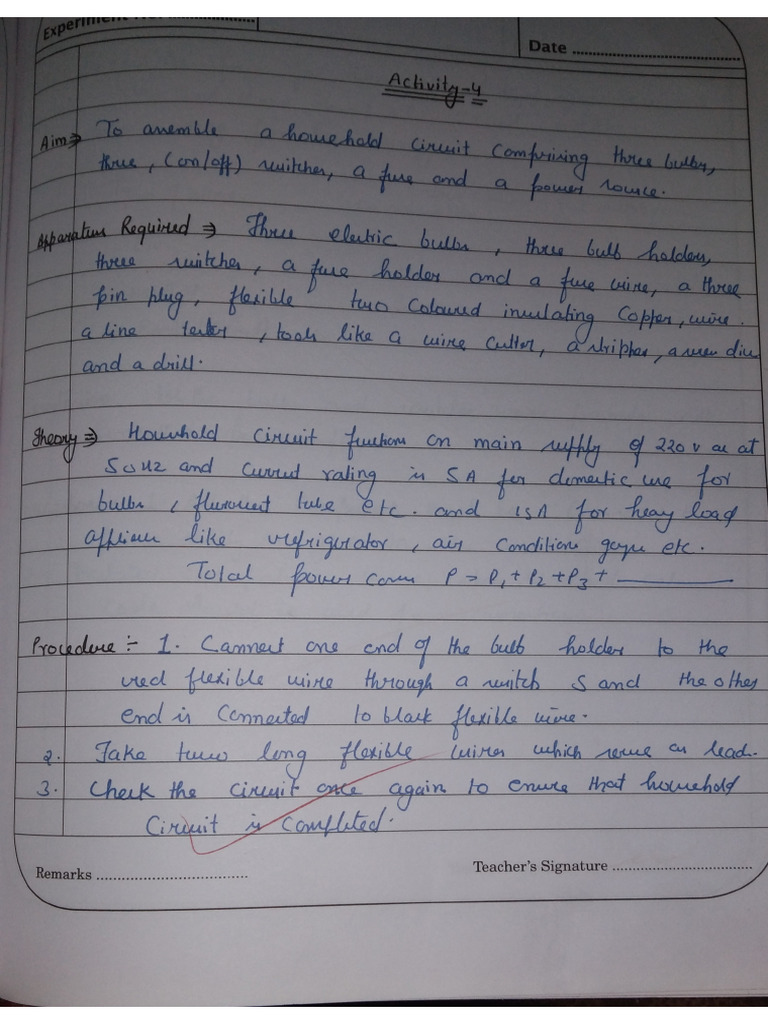 Experiment No. ..................
Date ..................................
Activity-4
Aim ⇒ To assemble a household circuit comprising three bulbs,
three, (on/off) switches, a fuse and a power source.
Apparatus Required ⇒ Three electric bulbs, three bulb holders,
three switches, a fuse holder and a fuse wire, a three
pin plug, flexible two coloured insulating Copper, wire.
a line tester, tools like a wire cutter, a stripper, a
and a drill.
Theory ⇒ Household circuit functions on main supply of 220 v ac at
50 Hz and current rating is 5A for domestic use for
bulbs, tube etc. and 15A for heavy load
like refrigerator, air Condition etc.
Total power P = P1 + P2 + P3 + __________
Procedure :- 1. Connect one end of the bulb holder to the
red flexible wire through a switch S and the other
end is Connected to black flexible wire.
2. Take two long flexible wires which serve as lead.
3. Check the circuit once again to ensure that household
Circuit is completed.
Remarks ..................................
Teacher's Signature ..................................